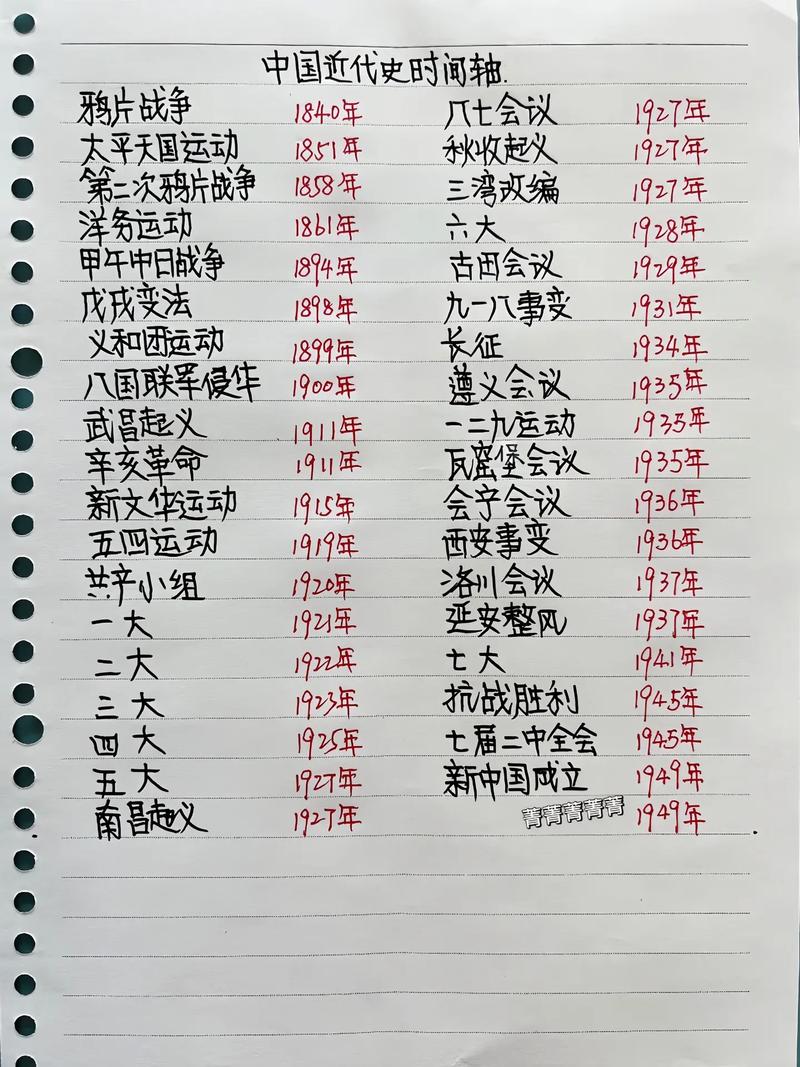 中国近代史时间轴.
鸦片战争 1840年
太平天国运动 1851年
第二次鸦片战争 1858年
洋务运动 1861年
甲午中日战争 1894年
戊戌变法 1898年
义和团运动 1899年
八国联军侵华 1900年
武昌起义 1911年
辛亥革命 1911年
新文华运动 1915年
五四运动 1919年
共产小组 1920年
一大 1921年
二大 1922年
三大 1923年
四大 1925年
五大 1927年
南昌起义 1927年
八七会议 1927年
秋收起义 1927年
三湾改编 1927年
六大 1928年
古田会议 1929年
九一八事变 1931年
长征 1934年
遵义会议 1935年
一二九运动 1935年
瓦窑堡会议 1935年
会宁会议 1936年
西安事变 1936年
洛川会议 1937年
延安整风 1937年
七大 1941年
抗战胜利 1945年
七届二中全会 1945年
新中国成立 1949年
菁菁菁菁菁 1949年